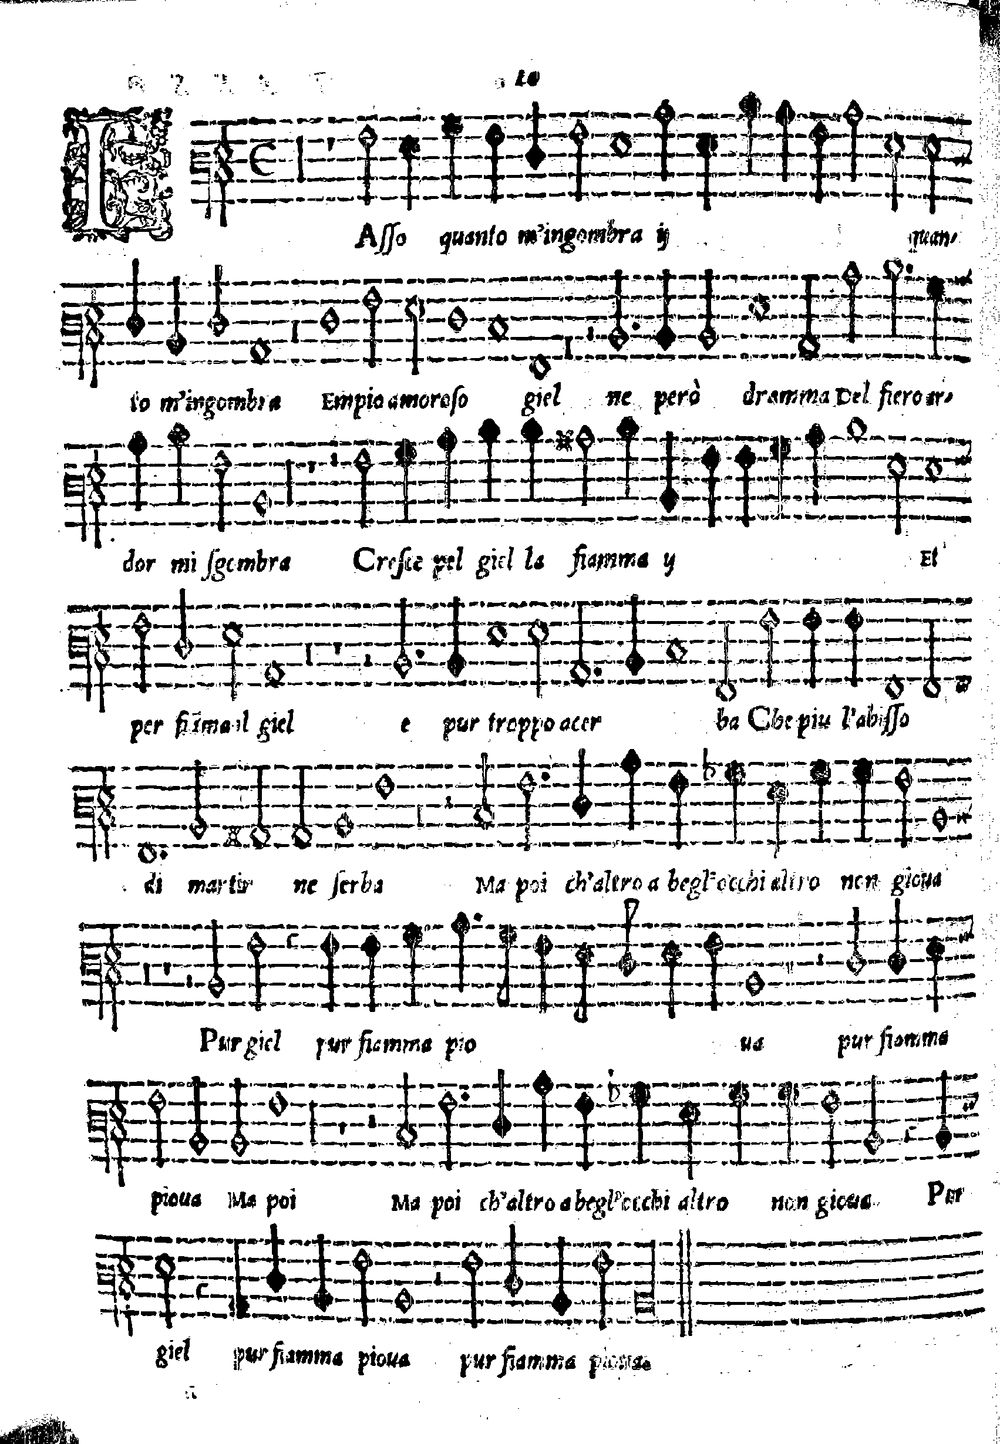 10
L Asso quanto m'ingombra ij quan-
to m'ingombra Empio amoroso giel ne però dramma Del fiero ar-
dor mi sgombra Cresce pel giel la fiamma ij Et
per fiãma il giel e pur troppo acer ba Che piu l'abisso
di martir ne serba Ma poi ch'altro a begl'occhi altro non gioua
Pur giel pur fiamma pio ua pur fiamma
pioua Ma poi Ma poi ch'altro a begl'occhi altro non gioua Pur
giel pur fiamma pioua pur fiamma pioua.